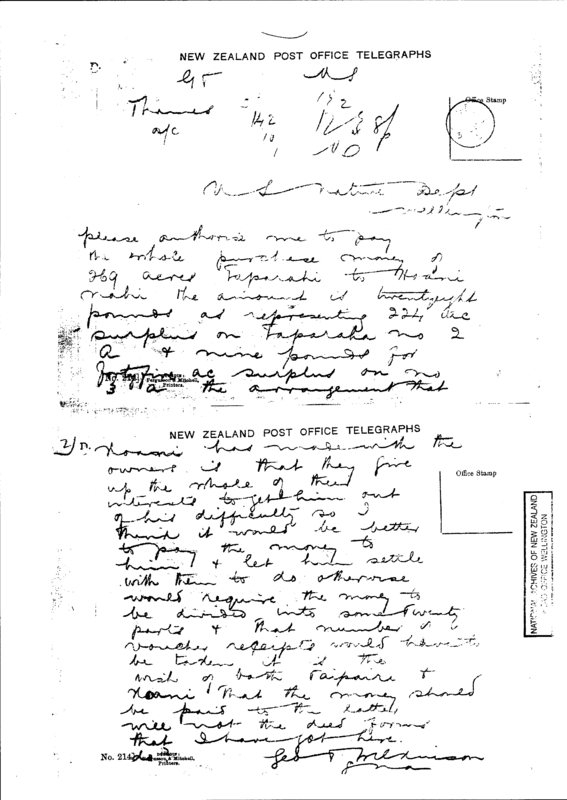 NEW ZEALAND POST OFFICE TELEGRAPHS
D.
Thames
a/c
142
10
1
Office Stamp
U S Native Dept
Wellington
please authorise me to pay
the whole purchase money of
269 acres Taparahi to Hoani
Nahi the amount is twentyeight
pounds as representing 224 ac
surplus on Taparahi no 2
A & nine pounds for
fortyfive ac surplus on no
3 A the arrangement that
Ferguson & Mitchell,
Printers.
NEW ZEALAND POST OFFICE TELEGRAPHS
2/ D. Hoani has made with the
owners is that they give
up the whole of their
interests to get him out
of his difficulty so I
think it would be better
to pay the money to
him & let him settle
with them to do otherwise
would require the money to
be divided into some twenty
parts & that number of
voucher receipts would have to
be taken it is the
wish of both Taipari &
Hoani that the money should
be paid to the latter
will not the deed forms
that I have got here
do
Office Stamp
Geo T Wilkinson
No. 214
Printers.
NATIONAL ARCHIVES OF NEW ZEALAND
HEAD OFFICE WELLINGTON